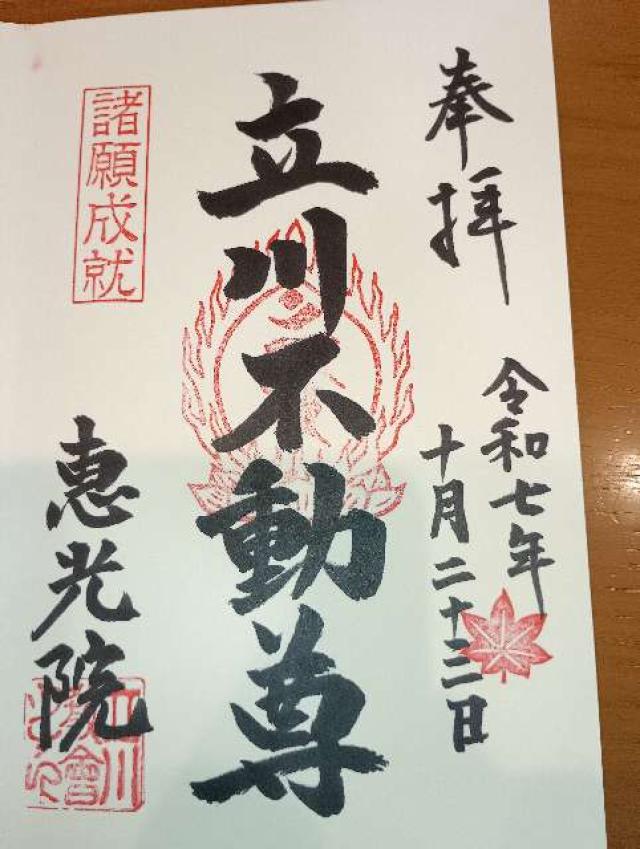 奉拝
令和七年
十月二十二日
立川不動尊
諸願成就
恵光院